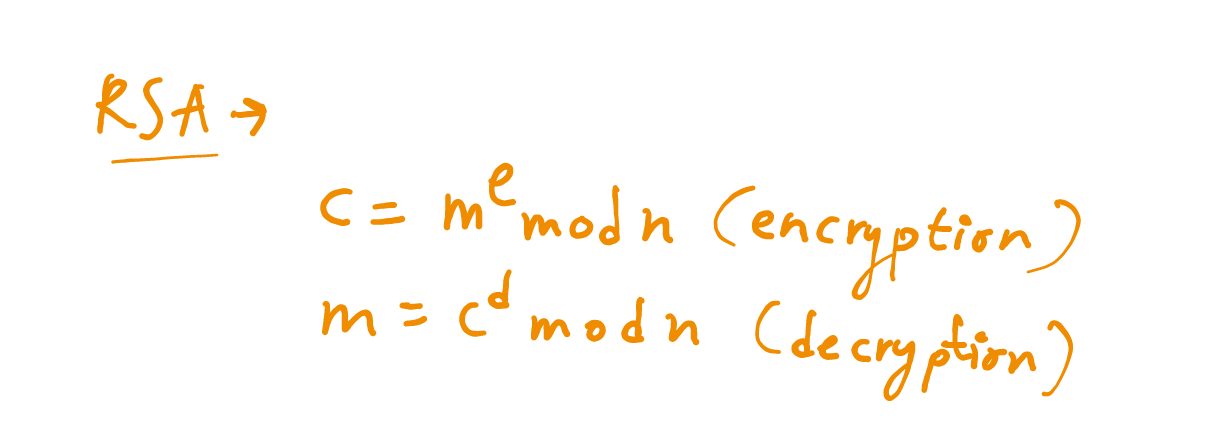 RSA →
c = m^e mod n (encryption)
m = c^d mod n (decryption)